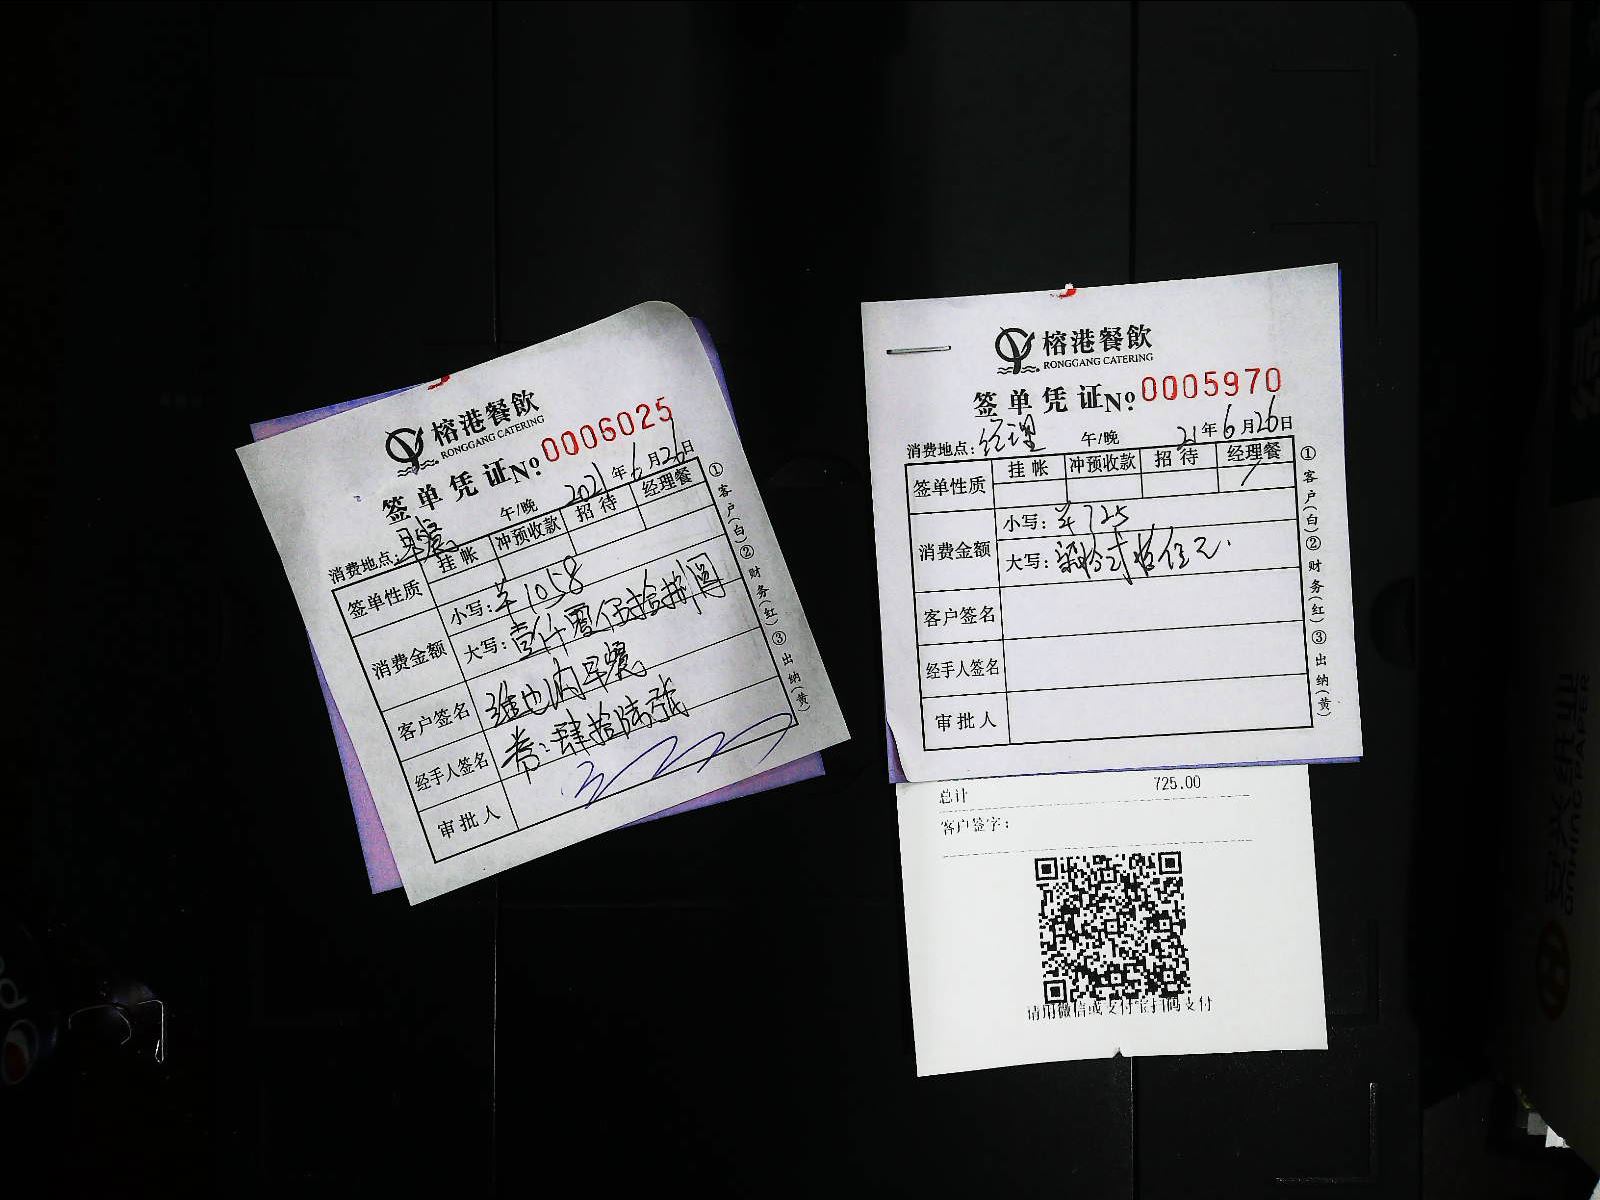 榕港餐飲
RONGGANG CATERING
签单凭证 No. 0006025
消费地点:早餐 午/晚 2021年6月26日
签单性质 挂帐 冲预收款 招待 经理餐
消费金额 小写:¥1058
大写:壹仟零伍拾捌圆
客户签名 维也纳早餐
经手人签名 券:肆拾陆张
审批人
①客户(白)②财务(红)③出纳(黄)
榕港餐飲
RONGGANG CATERING
签单凭证 No. 0005970
消费地点:经理 午/晚 21年6月26日
签单性质 挂帐 冲预收款 招待 经理餐
消费金额 小写:¥725
大写:柒佰贰拾伍元
客户签名
经手人签名
审批人
①客户(白)②财务(红)③出纳(黄)
总计 725.00
客户签字:
请用微信或支付宝扫码支付